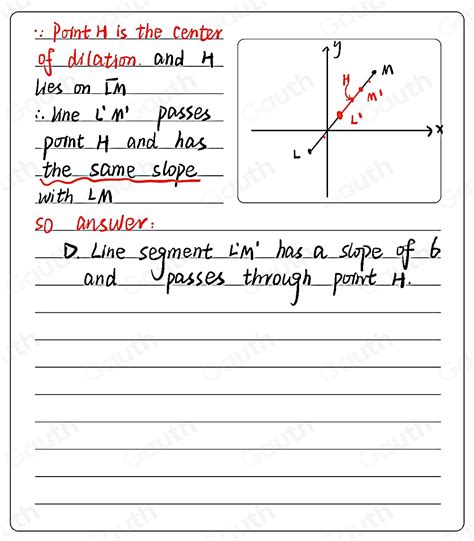 ∵ Point H is the center
of dilation. and H
lies on L̅M̅
∴ line L'M' passes
point H and has
the same slope
with LM
y
M
H
M'
L'
x
L
so answer:
D. Line segment L'M' has a slope of 6
and passes through point H.
Gauth